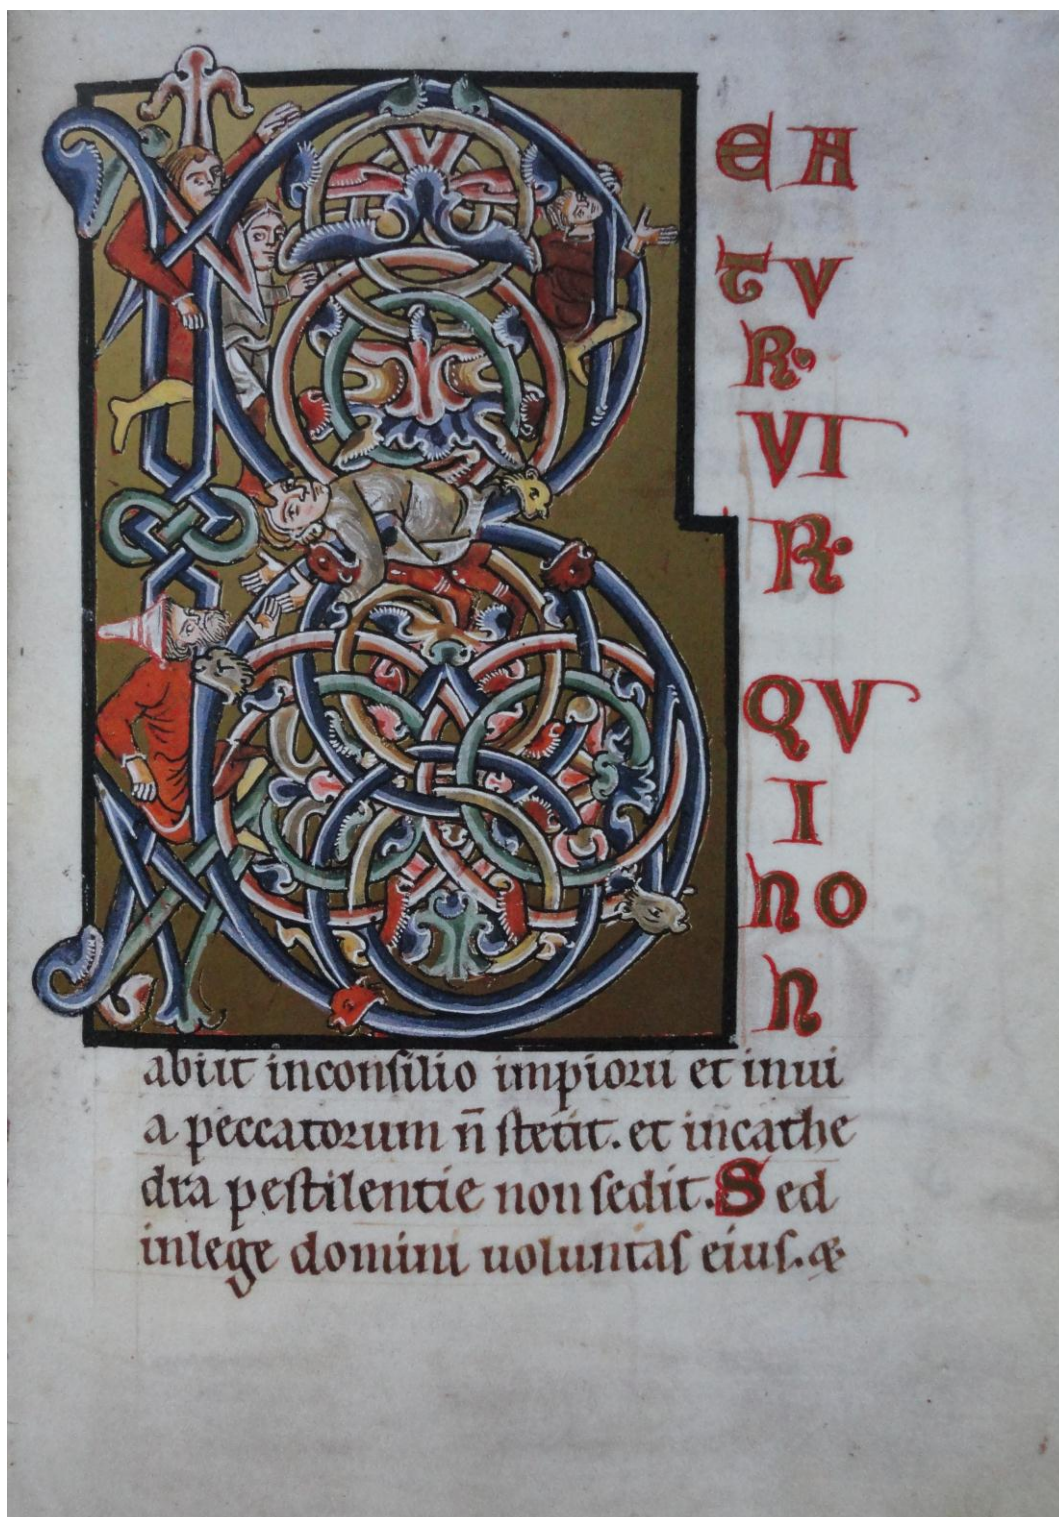 B
EA
TV
R·
VI
R·
QV
I
NO
N
abiit inconsilio impiorū et inui
a peccatorum n̄ stetit. et incathe
dra pestilentie non sedit. Sed
inlege domini uoluntas eius. &